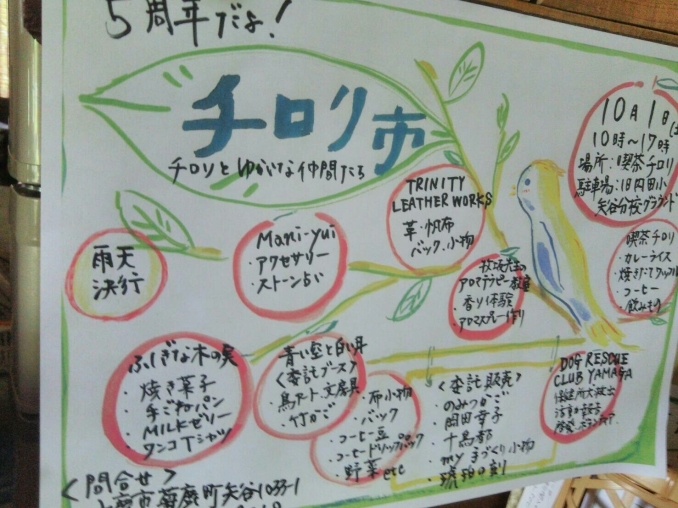 5周年だよ!
チロリ市
チロリとゆかいな仲間たち
10月1日(土
10時〜17時
場所:喫茶チロリ
駐車場:旧内田小
矢谷分校グラウンド
TRINITY
LEATHER WORKS
革・帆布
バック・小物
雨天
決行
Mani-yui
・アクセサリー
・ストーン占い
アロマテラピー教室
・香り体験
・アロマスプレー作り
喫茶チロリ
・カレーライス
・焼きたてワッフル
・コーヒー
・飲みもの
ふしぎな木の実
・焼き菓子
・手ごねパン
・MILKゼリー
・ワンコTシャツ
青い空と白い舟
<委託ブース>
・鳥アート・文房具
・竹かご
・布小物
・バック
・コーヒー豆
・コーヒードリップパック
・野菜etc
<委託販売>
・のみつかご
・岡田幸子
・千鳥都
・my手づくり小物
・琥珀の刻
DOG RESCUE
CLUB YAMAGA
<問合せ>
山鹿市菊鹿町矢谷1033-1